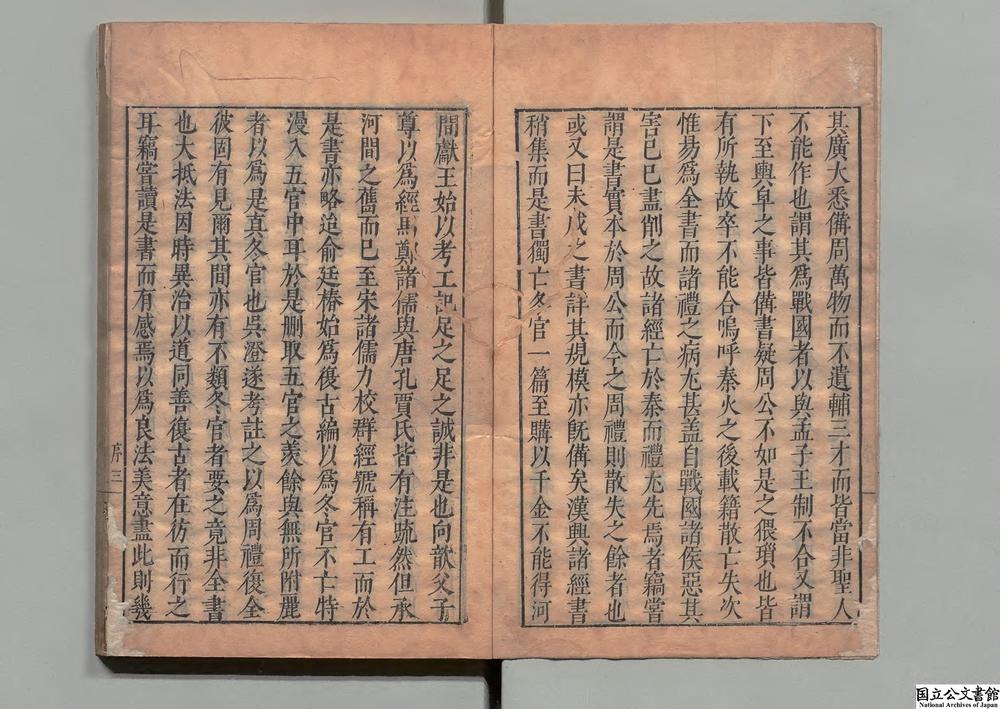 其廣大悉備周萬物而不遺輔三才而皆當非聖人
不能作也謂其爲戰國者以與孟子王制不合又謂
下至輿皁之事皆備書疑周公不如是之猥瑣也皆
有所執故卒不能合嗚呼秦火之後載籍散亡失次
惟易爲全書而諸禮之病尤甚盖自戰國諸侯惡其
害已已盡削之故諸經亡於秦而禮尤先焉者竊嘗
謂是書實本於周公而今之周禮則散失之餘者也
或又曰未成之書詳其規模亦旣備矣漢興諸經書
稍集而是書獨亡冬官一篇至購以千金不能得河
間獻王始以考工記足之足之誠非是也向歆父子
尊以爲經馬鄭諸儒與唐孔賈氏皆有注䟽然但承
河間之舊而已至宋諸儒力校群經號稱有工而於
是書亦略迨俞廷椿始爲復古編以爲冬官不亡特
漫入五官中耳於是刪取五官之羨餘與無所附麗
者以爲是真冬官也吳澄遂考註之以爲周禮復全
彼固有見爾其間亦有不類冬官者要之竟非全書
也大抵法因時異治以道同善復古者在彷而行之
耳竊嘗讀是書而有感焉以爲良法美意盡此則幾
序 三
国立公文書館
National Archives of Japan